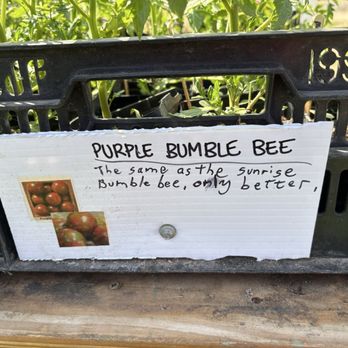 PURPLE BUMBLE BEE
The same as the sunrise
Bumble bee, only better,